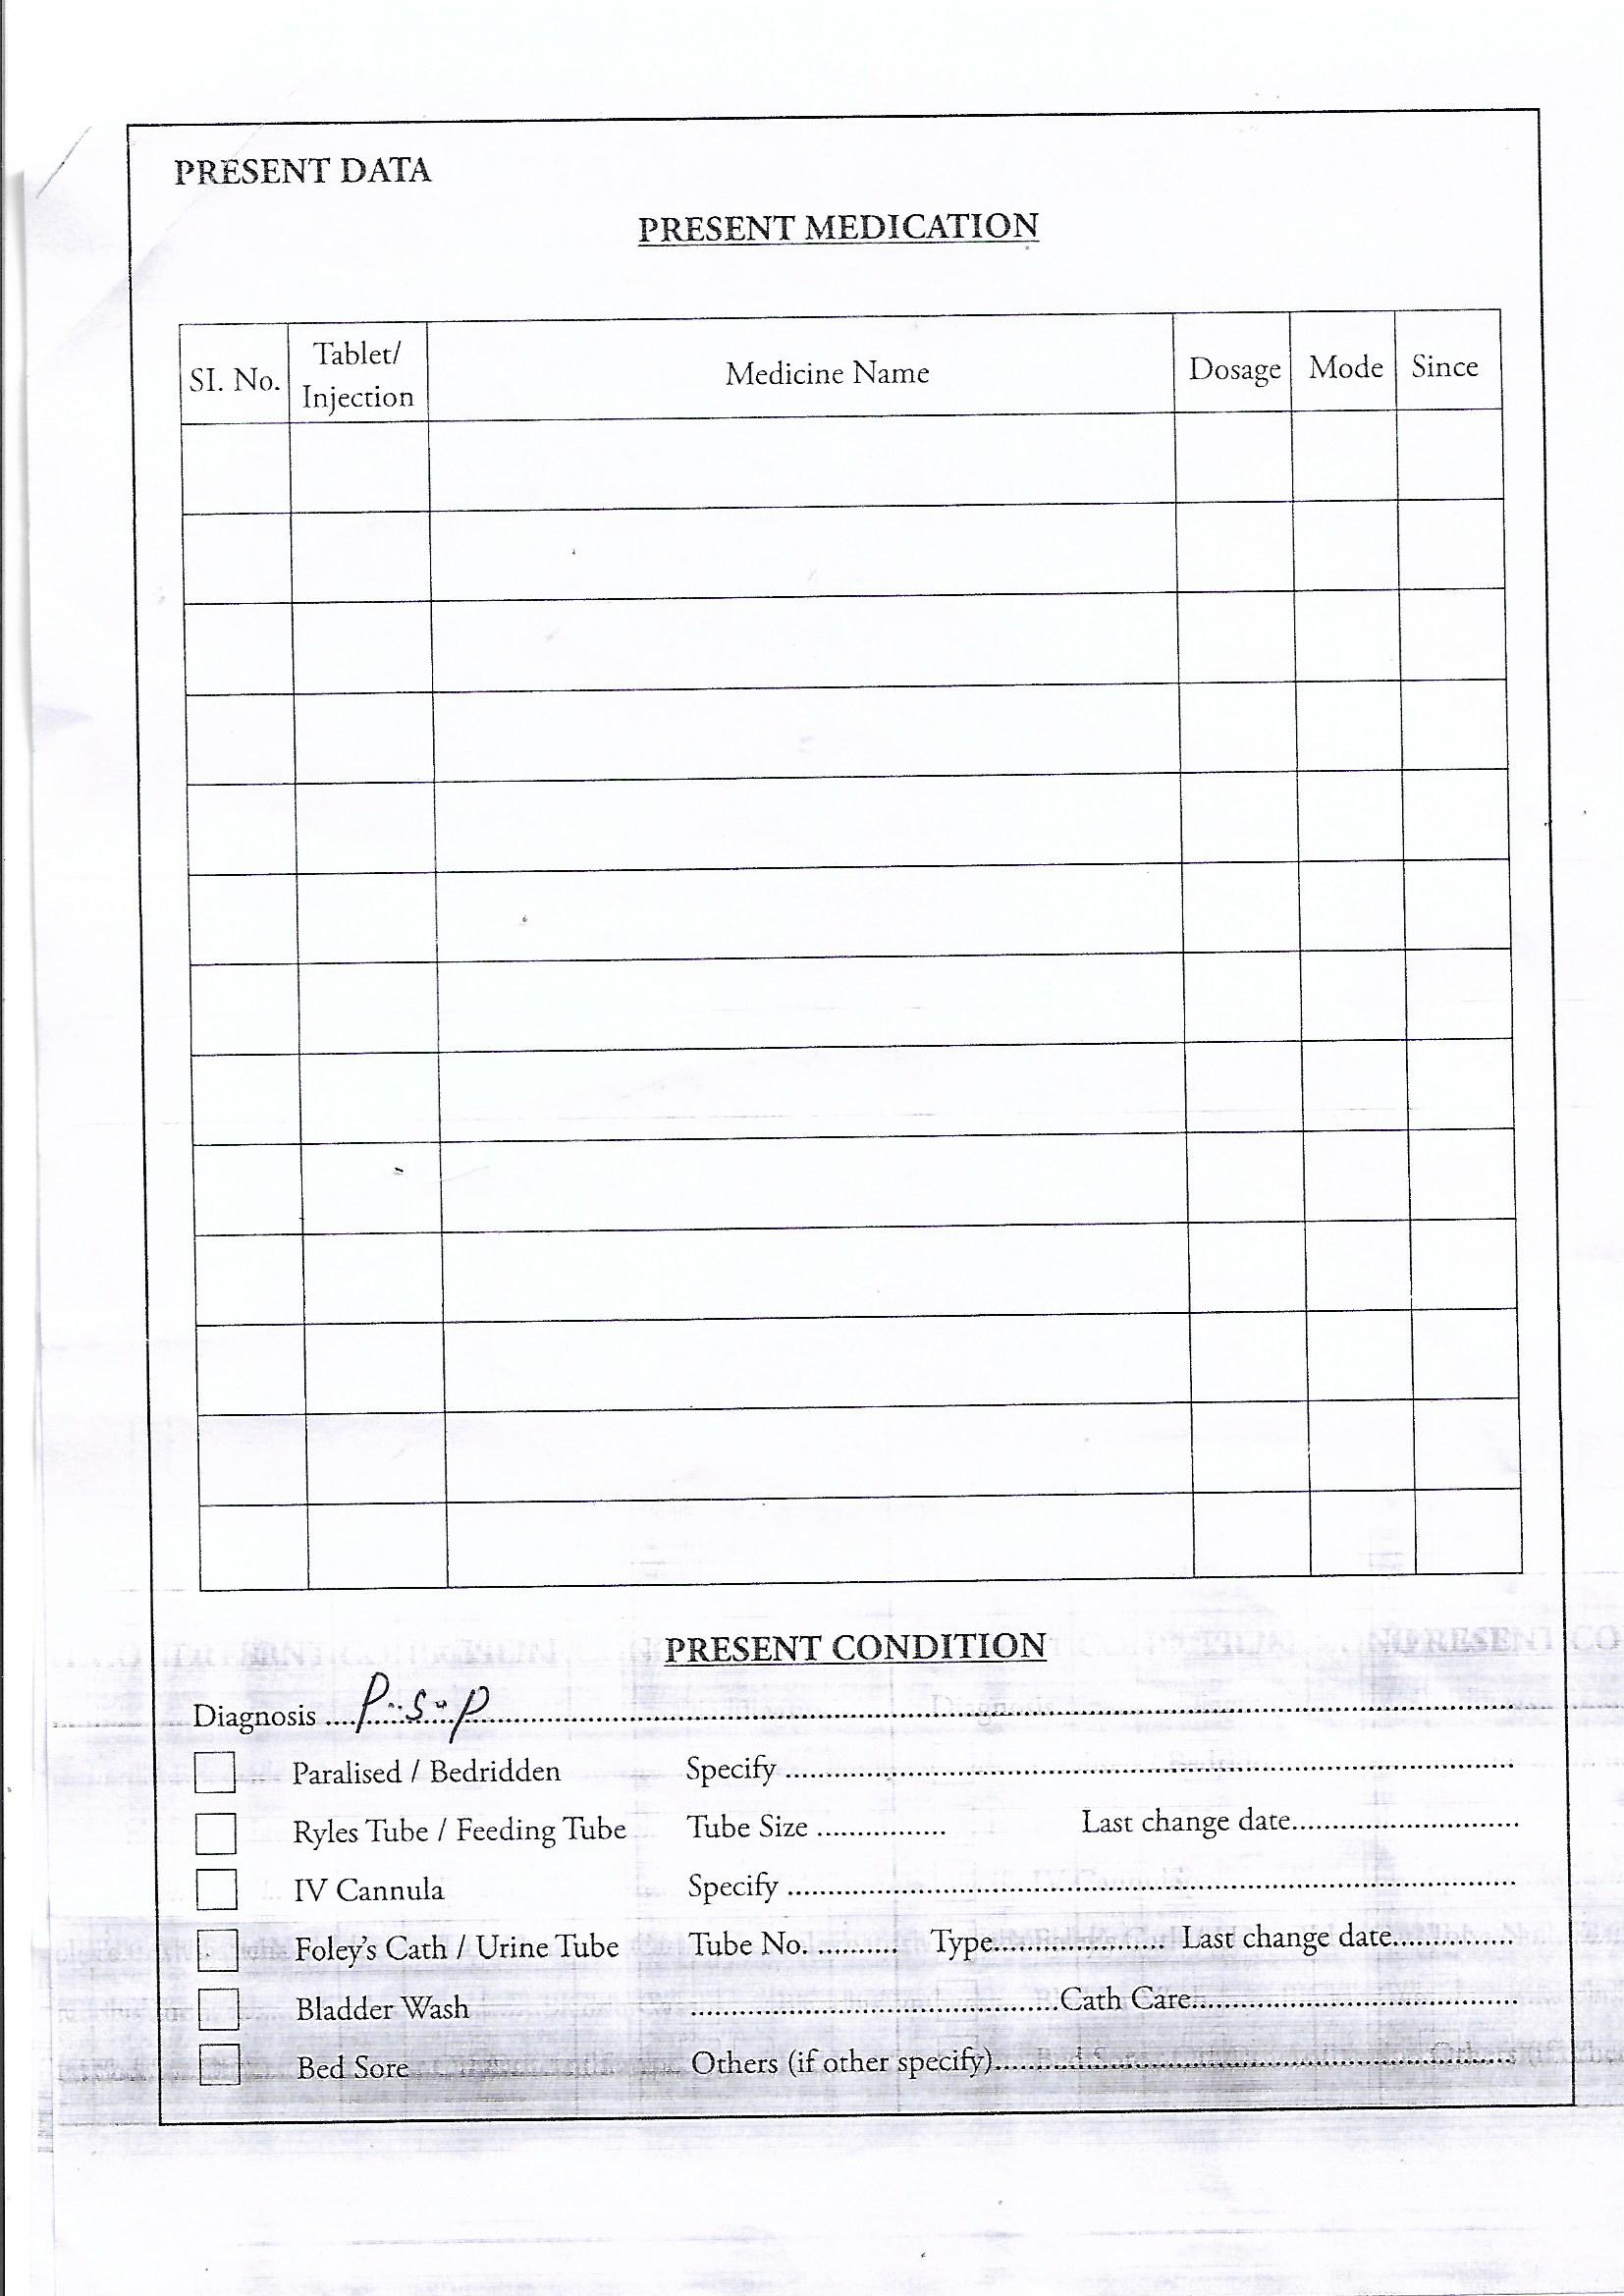 PRESENT DATA
PRESENT MEDICATION
SI. No. Tablet/ Injection Medicine Name Dosage Mode Since
PRESENT CONDITION
Diagnosis ....P..S..P..............................
Paralised / Bedridden Specify ..............................
Ryles Tube / Feeding Tube Tube Size ................ Last change date............................
IV Cannula Specify ..............................
Foley's Cath / Urine Tube Tube No. .......... Type..................... Last change date...............
Bladder Wash ..............................Cath Care..............................
Bed Sore Others (if other specify)..............................